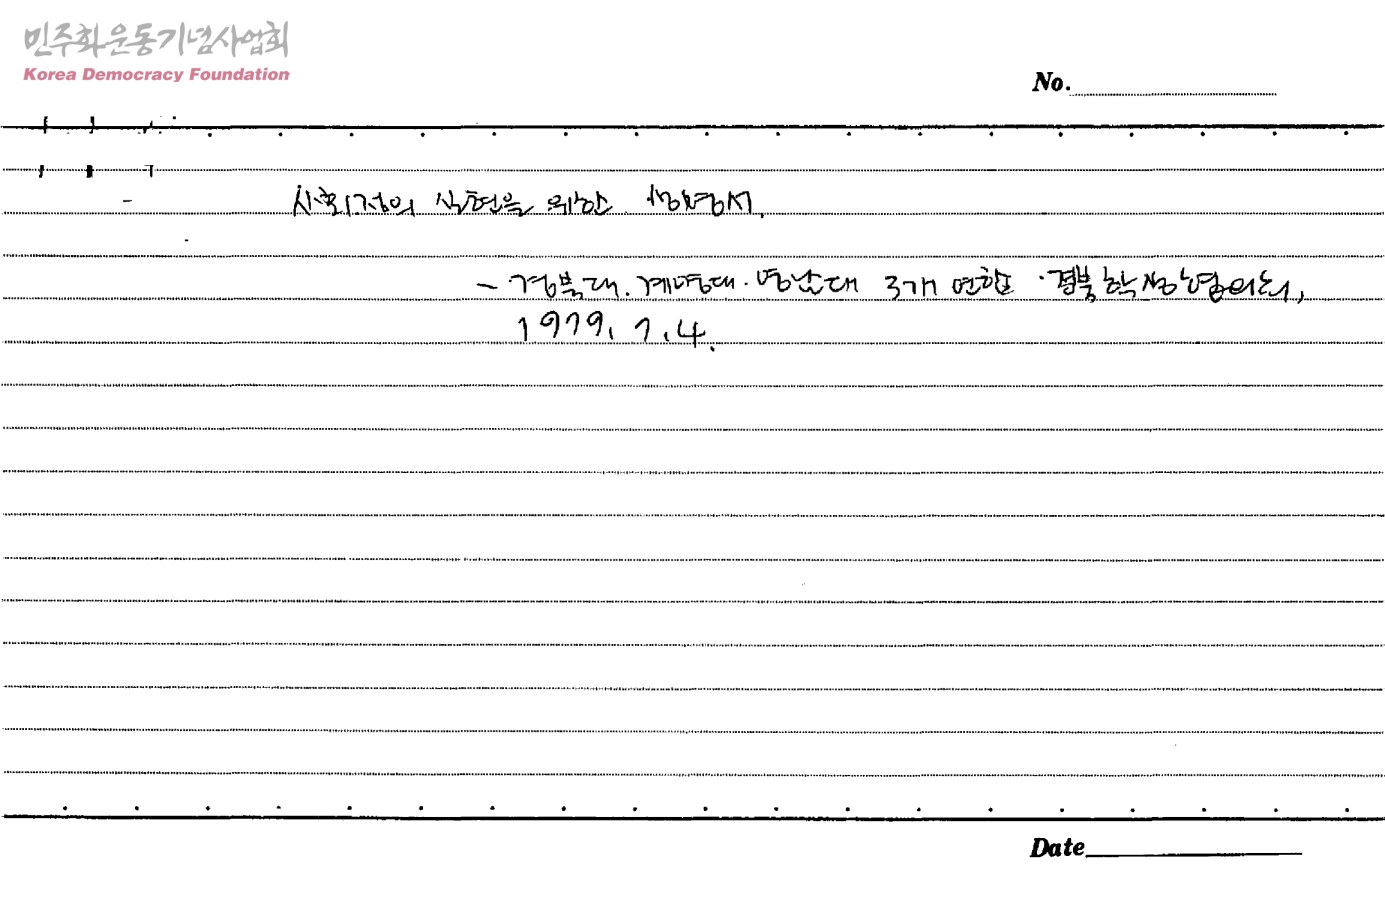 민주화운동기념사업회
Korea Democracy Foundation
No.
사회정의 실현을 위한 성명서.
- 경북대. 계명대. 영남대 3개 연합 경북학생협의회,
1979. 7. 4.
Date